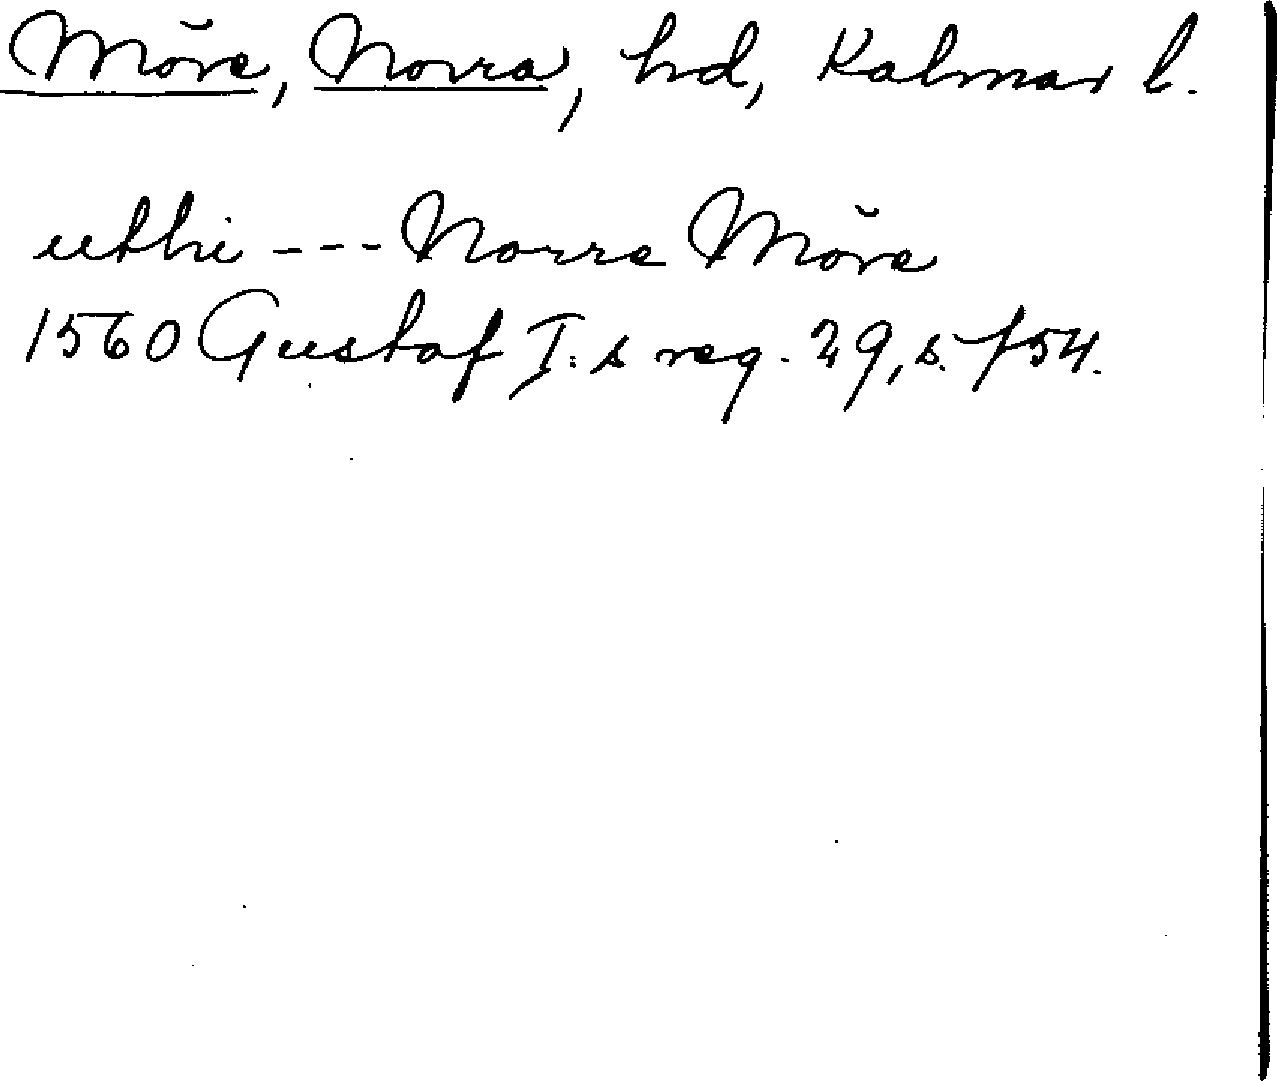 Möre, Norra, hd, Kalmar l.
uthi --- Norre Möre
1560 Gustaf I:s reg. 29, s. 754.